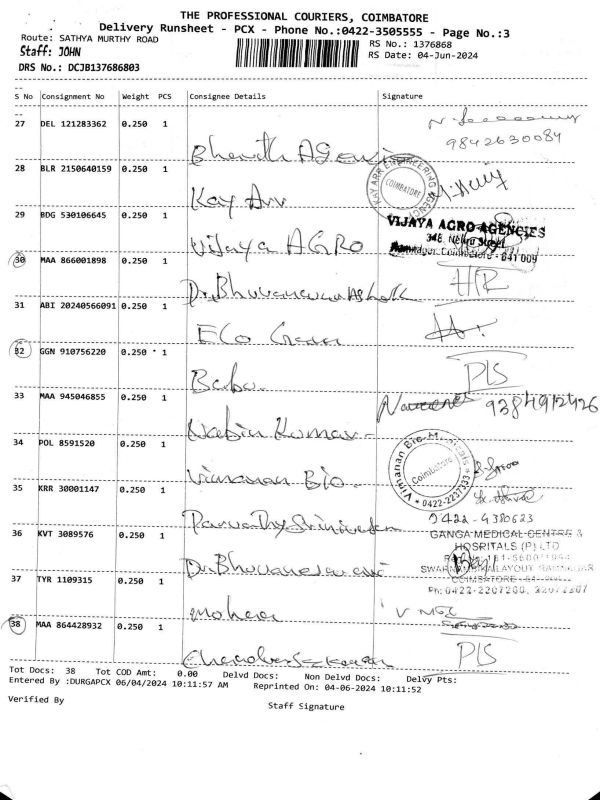 THE PROFESSIONAL COURIERS, COIMBATORE
Delivery Runsheet - PCX - Phone No.:0422-3505555 - Page No.:3
Route: SATHYA MURTHY ROAD
RS No.: 1376868
Staff: JOHN
RS Date: 04-Jun-2024
DRS No.: DCJB137686803
S No Consignment No Weight PCS Consignee Details Signature
27 DEL 121283362 0.250 1
9842630084
Bharath AGencies
28 BLR 2150640159 0.250 1
KAY ARR ENGINEERING AGENCY
COIMBATORE
Kay Arr
29 BDG 530106645 0.250 1
VIJAYA AGRO AGENCIES
348, Nehru Street
Coimbatore - 641 009
Vijaya AGRO
30 MAA 866001898 0.250 1
HR
Dr. Bhuvaneswari Ashok
31 ABI 20240566091 0.250 1
Eco Green
32 GGN 910756220 0.250 1
PLS
Babu
33 MAA 945046855 0.250 1
9384912426
Nabin Kumar
34 POL 8591520 0.250 1
Vimanan Bio-Medicals
Coimbatore
0422-2237333
Vimanan Bio
35 KRR 30001147 0.250 1
0422-4380623
Parvathy Srinivasan
36 KVT 3089576 0.250 1
GANGA MEDICAL CENTRE &
HOSPITALS (P) LTD
SWARNAMBIKA LAYOUT, RAMNAGAR
COIMBATORE
Ph: 0422-2207200,
Dr. Bhuvaneswari
37 TYR 1109315 0.250 1
Mohan
38 MAA 864428932 0.250 1
PLS
Chandrasekaran
Tot Docs: 38 Tot COD Amt: 0.00 Delvd Docs: Non Delvd Docs: Delvy Pts:
Entered By :DURGAPCX 06/04/2024 10:11:57 AM Reprinted On: 04-06-2024 10:11:52
Verified By
Staff Signature